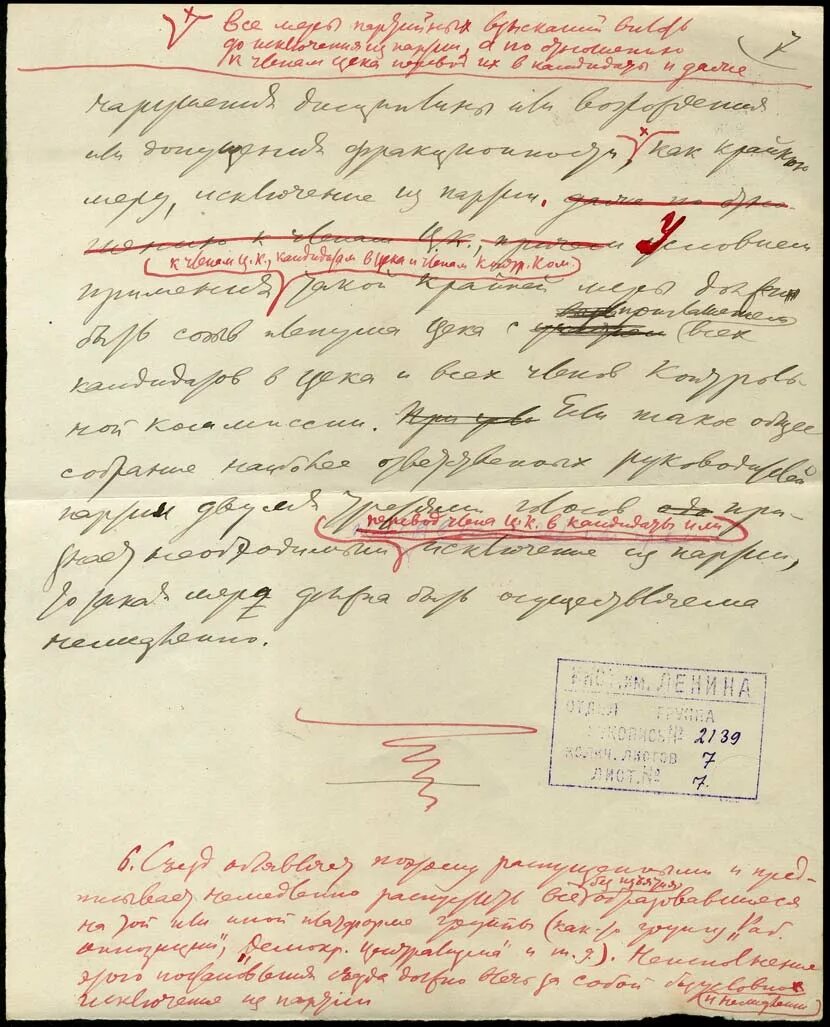 все меры партийных взысканий вплоть
до исключения из партии, а по отношению
к членам Цека перевод их в кандидаты и даже
7
нарушения дисциплины или возрождения
или допущения фракционности, как крайнюю
меру, исключение из партии. даже по отно-
шению к членам Ц.К., причем Условием
к членам Ц.К., кандидатам в Цека и членам Контр. Ком.
применения такой крайней меры должен
приглашением
быть созыв пленума Цека с всех
кандидатов в Цека и всех членов Контроль-
ной Комиссии. Если такое общее
собрание наиболее ответственных руководителей
партии двумя третями голосов при-
перевод члена Ц.К. в кандидаты или
знает необходимым исключение из партии,
то такая мера должна быть осуществляема
немедленно.
Инст. им. ЛЕНИНА
ОТДЕЛ ГРУППА
РУКОПИСЬ № 2139
КОЛИЧ. ЛИСТОВ 7
ЛИСТ. № 7.
6. Съезд объявляет поэтому распущенными и пред-
без изъятия
писывает немедленно распустить все образовавшиеся
на той или иной платформе группы (как-то группу „Раб.
оппозиции", „Демокр. централизма" и т.д.). Неисполнение
этого постановления съезда должно влечь за собой безусловное
и немедленное
исключение из партии